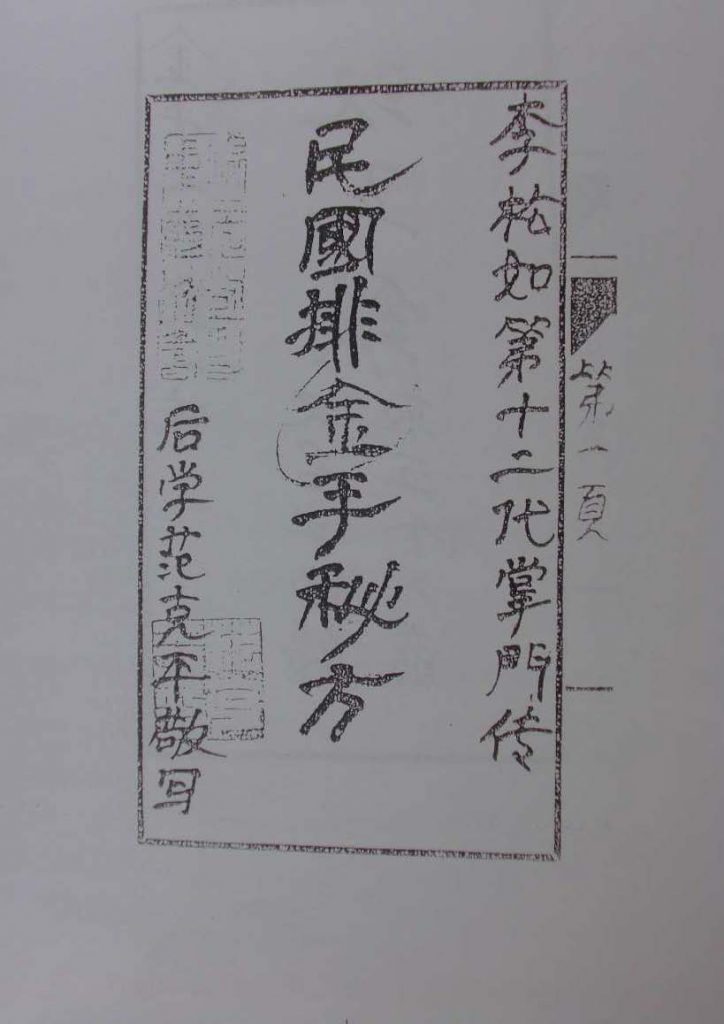 李松如第十二代掌門传
民國排金手秘方
后学范克平敬写
第一頁